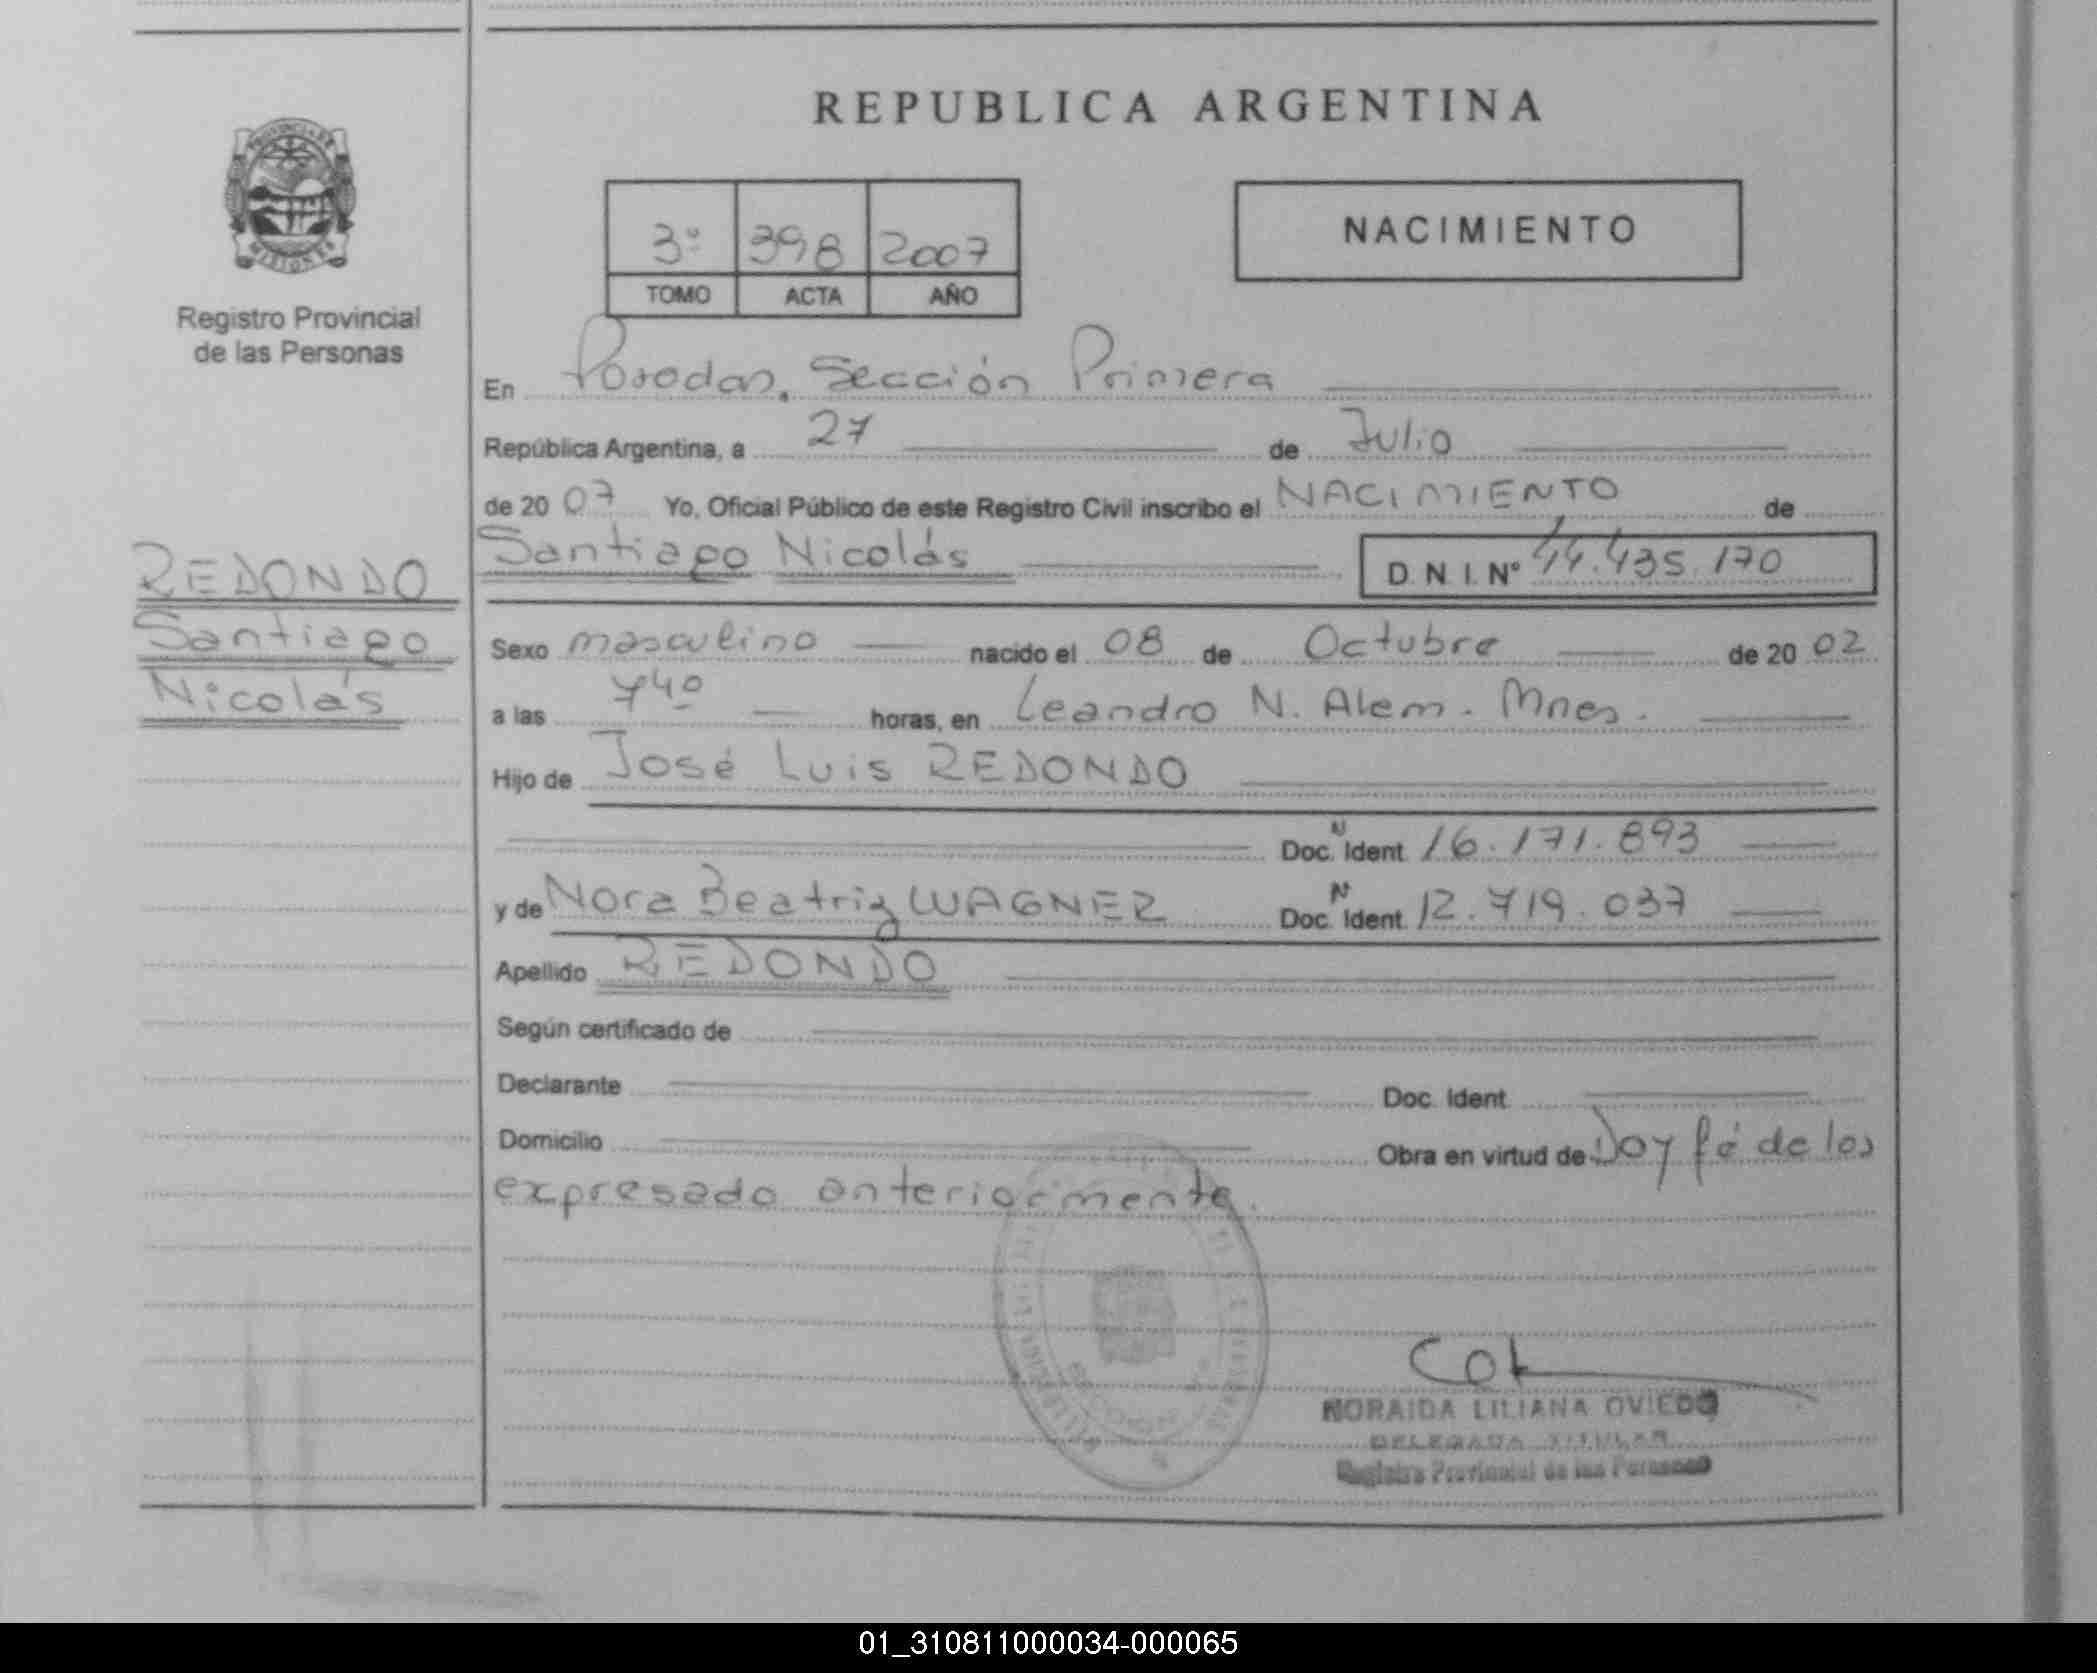 REPUBLICA ARGENTINA
PROVINCIA DE
MISIONES
Registro Provincial
de las Personas
3º 398 2007
TOMO ACTA AÑO
NACIMIENTO
En Posadas, Sección Primera
República Argentina, a 27 de Julio
de 2007 Yo, Oficial Público de este Registro Civil inscribo el NACIMIENTO de
Santiago Nicolás D.N.I. Nº 44.435.170
REDONDO
Santiago
Nicolás
Sexo masculino nacido el 08 de Octubre de 2002
a las 7 40 horas, en Leandro N. Alem. Mnes.
Hijo de José Luis REDONDO
Doc. N Ident. 16.171.893
y de Nora Beatriz WAGNER Doc. N Ident. 12.719.037
Apellido REDONDO
Según certificado de
Declarante Doc. Ident.
Domicilio Obra en virtud de Doy fé de los
expresado anteriormente.
SECCION
NORAIDA LILIANA OVIEDO
DELEGADA TITULAR
Registro Provincial de las Personas
01_310811000034-000065